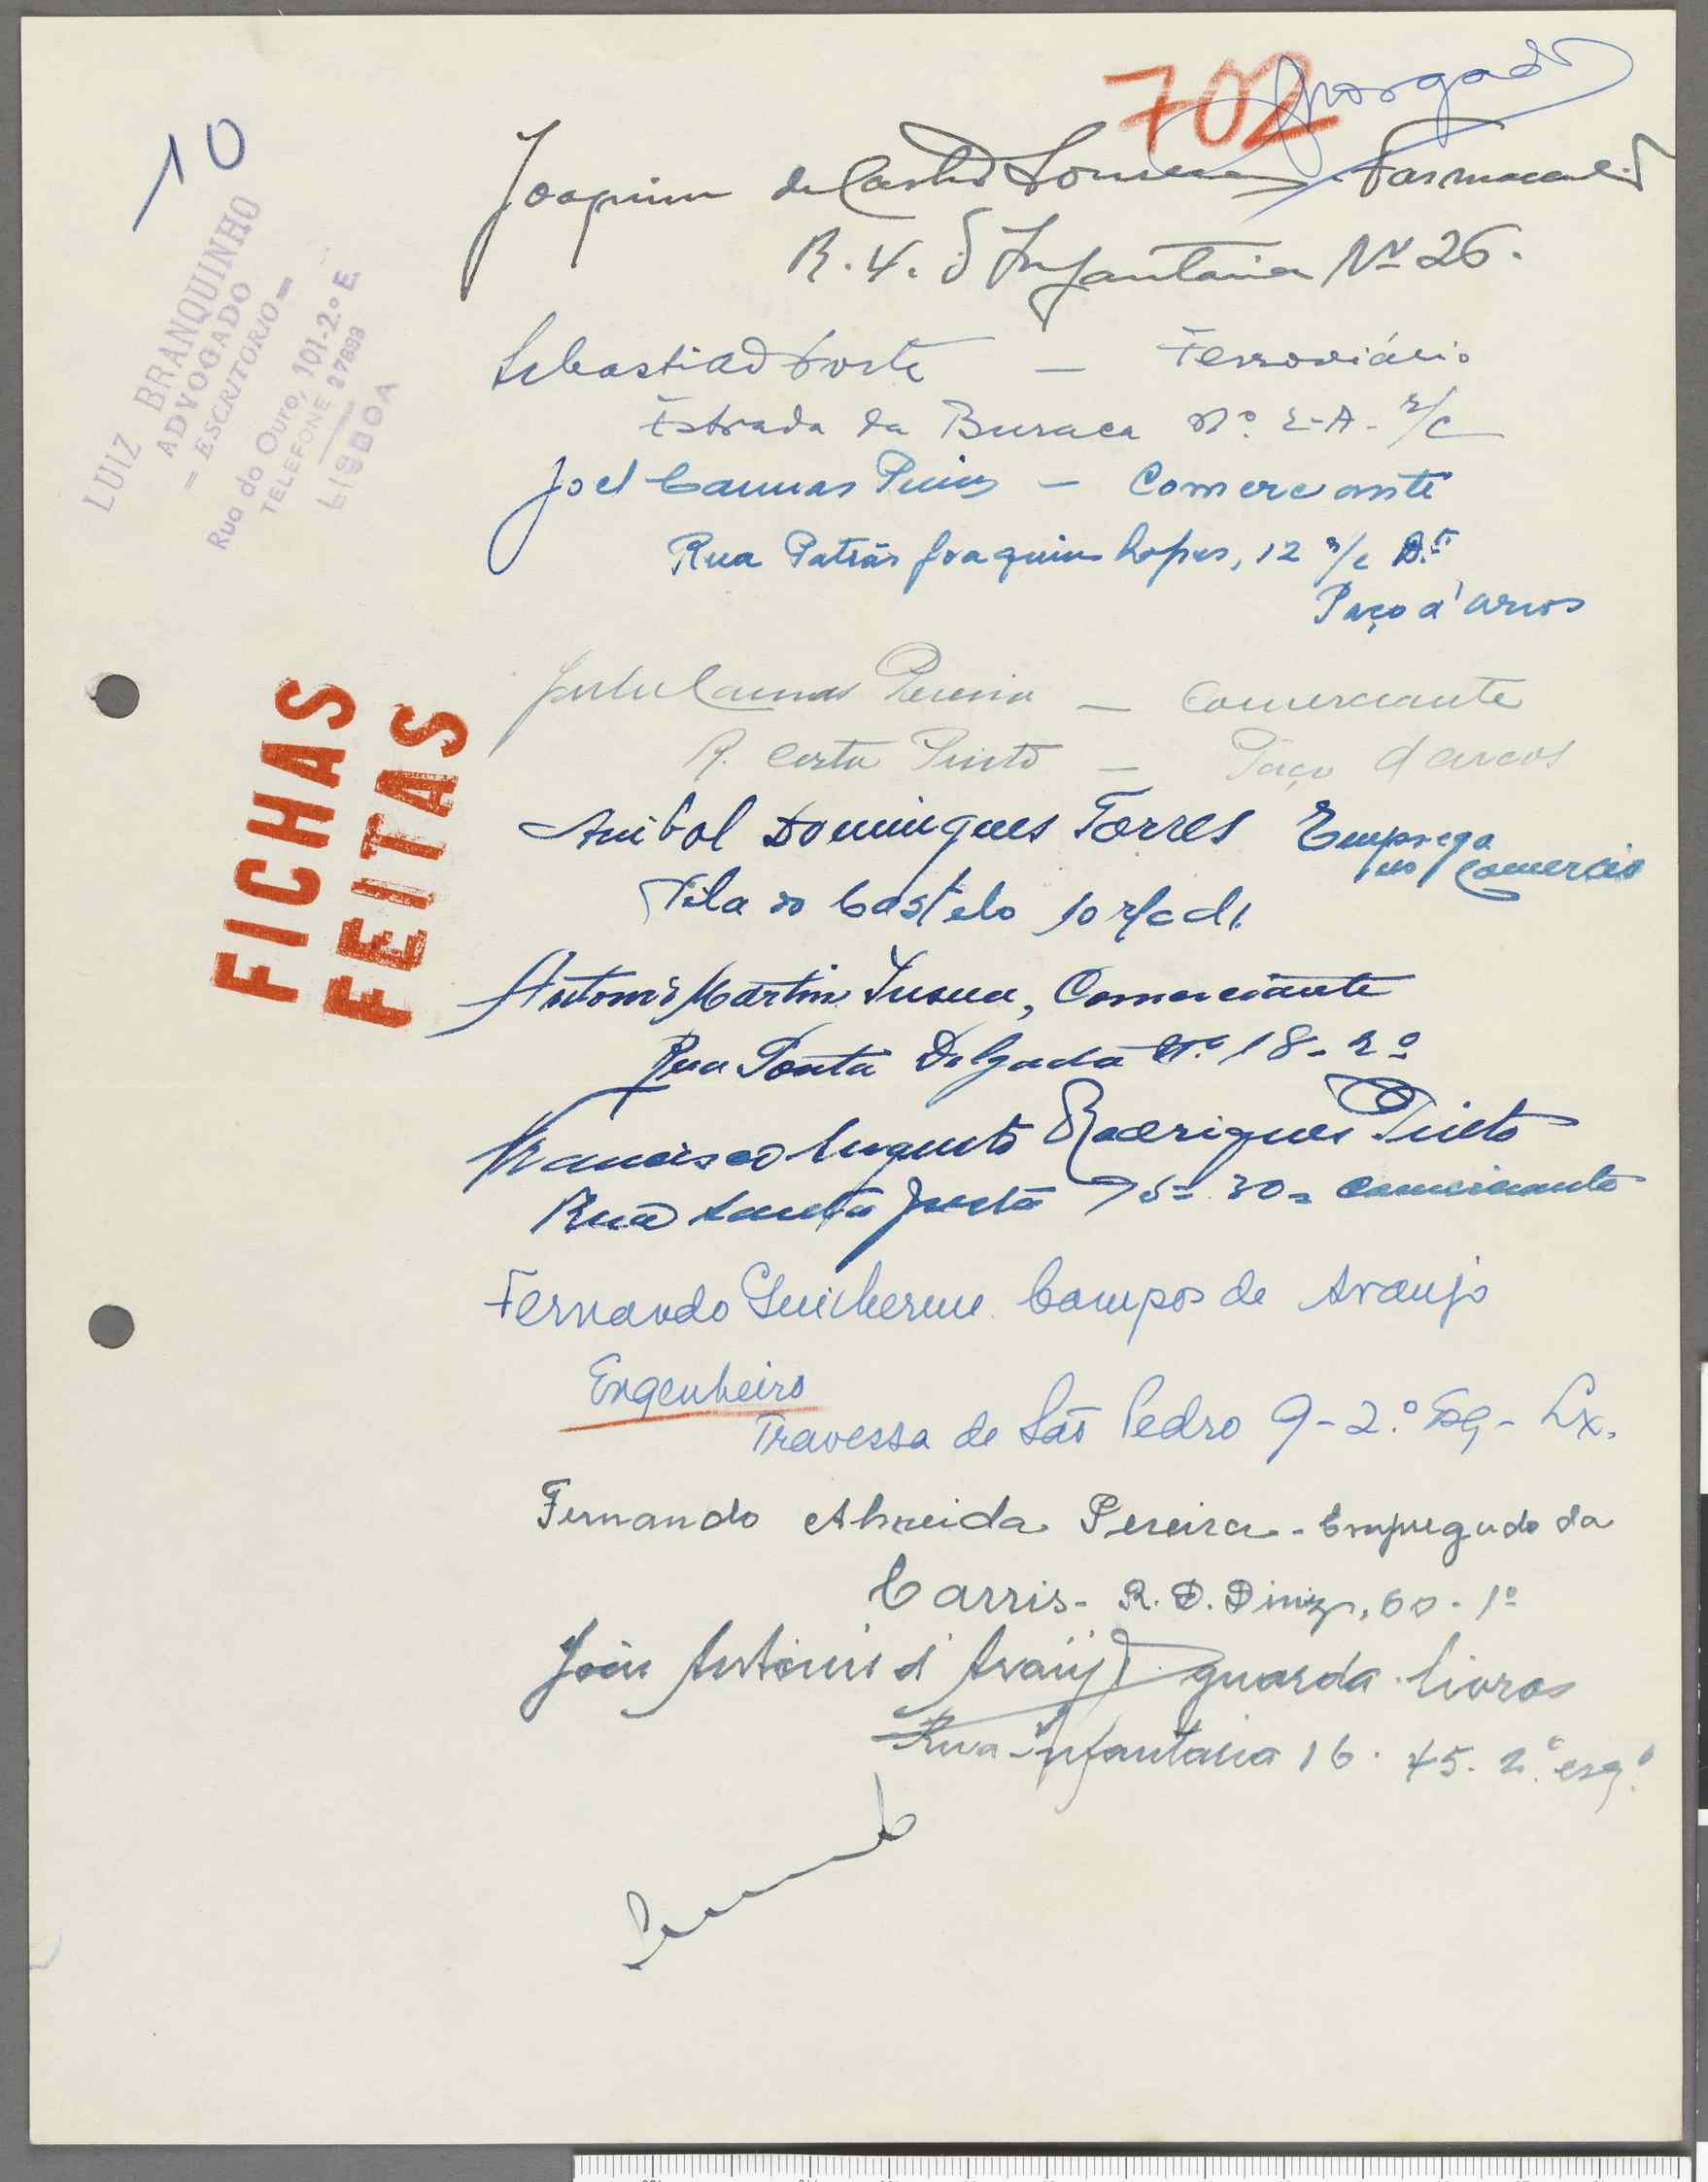 702
Morgado
10
LUIZ BRANQUINHO
ADVOGADO
= ESCRITORIO =
Rua do Ouro, 101-2.º E.
TELEFONE 27693
LISBOA
Joaquim de Castro Farmaceut
R. 4. d Infantaria Nº 26.
Sebastião Forte — Ferroviário
Estrada da Buraca Nº. 2-A- r/c
Joel Cannas — Comerciante
Rua Patrão Joaquim Lopes, 12 r/c D.to
Paço d'arcos
FICHAS
FEITAS
Cannas Pereira — Comerciante
R. Costa Pinto — Paço d'arcos
Anibal Domingues Torres Emprega
no Comercio
do Castelo 10 r/c dt.
Antonio Martins, Comerciante
Rua Ponta Delgada Nº 18-2º
Francisco Augusto Rodrigues Pinto
Rua Santa Justa 75= 30= comerciante
Fernando Guilherme Campos de Araujo
Engenheiro
Travessa de São Pedro 9-2.º Esq- Lx.
Fernando Almeida Pereira - Empregado da
Carris - R. D. Diniz, 60-1º
João António d'Araújo guarda-livros
Rua Infantaria 16. 45. 2.º esqº